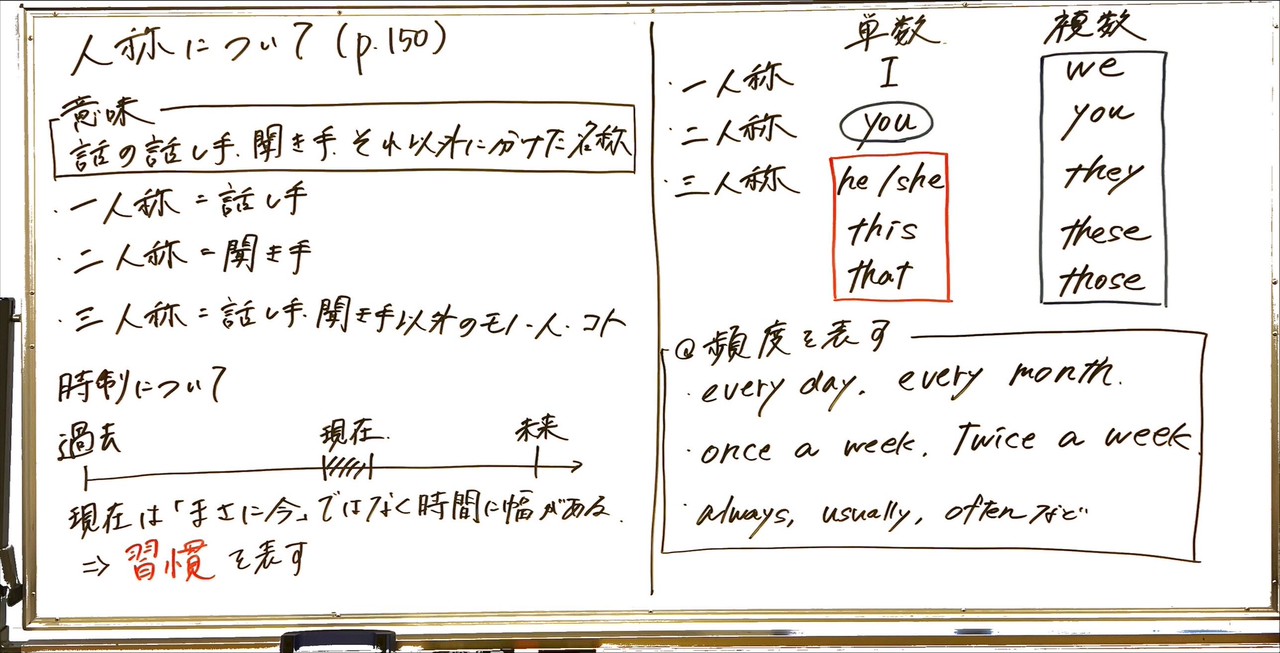 人称について (p.150)
意味
話の話し手、聞き手、それ以外に分けた名称
・一人称 = 話し手
・二人称 = 聞き手
・三人称 = 話し手、聞き手以外のモノ・人・コト
時制について
過去 現在 未来
現在は「まさに今」ではなく時間に幅がある。
⇒ 習慣を表す
単数 複数
・一人称 I we
・二人称 you you
・三人称 he/she they
this these
that those
@頻度を表す
・every day, every month.
・once a week, Twice a week
・always, usually, oftenなど